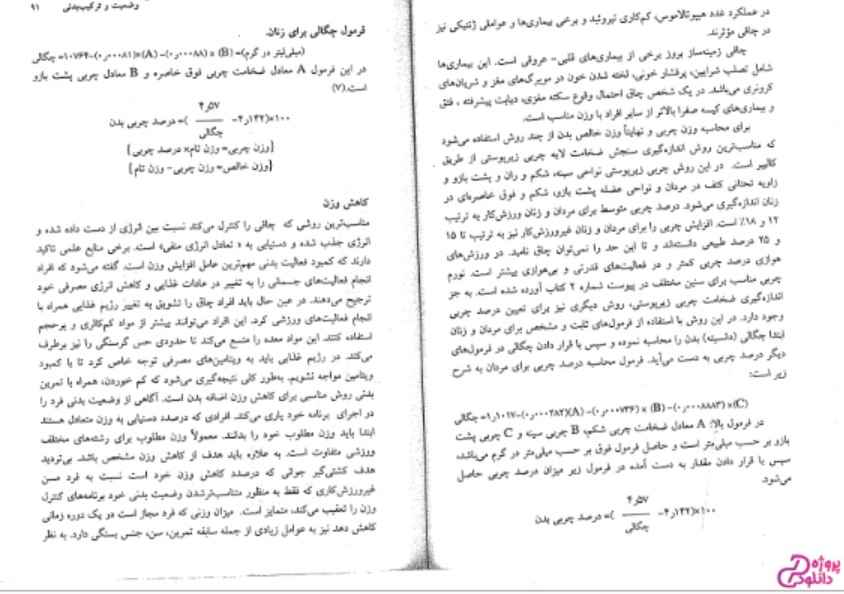 در عملکرد غده هیپوتالاموس، کم‌کاری تیروئید و برخی بیماری‌ها و عواملی ژنتیکی نیز
در چاقی مؤثرند.
چاقی زمینه‌ساز بروز برخی از بیماری‌های قلبی- عروقی است. این بیماری‌ها
شامل تصلب شرایین، پرفشار خونی، لخته شدن خون در مویرگ‌های مغز و شریان‌های
کرونری می‌باشد. در یک شخص چاق احتمال وقوع سکته مغزی، دیابت پیشرفته ، فتق
و بیماری‌های کیسه صفرا بالاتر از سایر افراد با وزن مناسب است.
برای محاسبه وزن چربی و نهایتاً وزن خالص بدن از چند روش استفاده می‌شود
که مناسب‌ترین روش اندازه‌گیری سنجش ضخامت لایه چربی زیرپوستی از طریق
کالیپر است. در این روش چربی زیرپوستی نواحی سینه، شکم و ران و پشت بازو و
زاویه تحتانی کتف در مردان و نواحی عضله پشت بازو، شکم و فوق خاصره‌ای در
زنان اندازه‌گیری می‌شود. درصد چربی متوسط برای مردان و زنان ورزش‌کار به ترتیب
۱۲ و ۱۸٪ است. افزایش چربی را برای مردان و زنان غیرورزش‌کار نیز به ترتیب تا ۱۵
و ۲۵ درصد طبیعی دانسته‌اند و تا این حد را نمی‌توان چاق نامید. در ورزش‌های
هوازی درصد چربی کمتر و در فعالیت‌های قدرتی و بی‌هوازی بیشتر است. نورم
چربی مناسب برای سنین مختلف در پیوست شماره ۲ کتاب آورده شده است. به جز
اندازه‌گیری ضخامت چربی زیرپوستی، روش دیگری نیز برای تعیین درصد چربی
وجود دارد. در این روش با استفاده از فرمول‌های ثابت و مشخص برای مردان و زنان
ابتدا چگالی (دانسیته) بدن را محاسبه نموده و سپس با قرار دادن چگالی در فرمول‌های
دیگر درصد چربی به دست می‌آید. فرمول محاسبه درصد چربی برای مردان به شرح
زیر است:
(C)× (۰٫۰۰۰۸۸۸۳)- (B) × (۰٫۰۰۰۷۳۶)- (A)(۰٫۰۰۰۲۸۲)-۱٫۱۰۱۷= چگالی
در فرمول بالا: A معادل ضخامت چربی شکم، B چربی سینه و C چربی پشت
بازو بر حسب میلی‌متر است و حاصل فرمول فوق بر حسب میلی‌متر در گرم می‌باشد،
سپس با قرار دادن مقدار به دست آمده در فرمول زیر میزان درصد چربی حاصل
می‌شود.
۱۰۰×(۴٫۱۴۲- ۴٫۵۷ / چگالی )= درصد چربی بدن
وضعیت و ترکیب‌بدنی ۹۱
فرمول چگالی برای زنان.
(میلی‌لیتر در گرم)= (B) × (۰٫۰۰۰۸۸)- (A)×(۰٫۰۰۰۸۱)-۱٫۰۷۶۴= چگالی
در این فرمول A معادل ضخامت چربی فوق خاصره و B معادل چربی پشت بازو
است.(۷)
۱۰۰×(۴٫۱۴۲- ۴٫۵۷ / چگالی )= درصد چربی بدن
{وزن چربی= وزن تام× درصد چربی}
{وزن خالص= وزن چربی- وزن تام}
کاهش وزن
مناسب‌ترین روشی که چاقی را کنترل می‌کند نسبت بین انرژی از دست داده شده و
انرژی جذب شده و دستیابی به « تعادل انرژی منفی» است. برخی منابع علمی تاکید
دارند که کمبود فعالیت بدنی مهم‌ترین عامل افزایش وزن است. گفته می‌شود که افراد
انجام فعالیت‌های جسمانی را به تغییر در عادات غذایی و کاهش انرژی مصرفی خود
ترجیح می‌دهند. در عین حال باید افراد چاق را تشویق به تغییر رژیم غذایی همراه با
انجام فعالیت‌های ورزشی کرد. این افراد می‌توانند بیشتر از مواد کم‌کالری و پرحجم
استفاده کنند. این مواد معده را متسع می‌کند تا حدودی حس گرسنگی را نیز برطرف
می‌کند. در رژیم غذایی باید به ویتامین‌های مصرفی توجه خاص کرد تا با کمبود
ویتامین مواجه نشویم. به‌طور کلی نتیجه‌گیری می‌شود که کم خوردن، همراه با تمرین
بدنی روش مناسبی برای کاهش وزن اضافه بدن است. آگاهی از وضعیت بدنی فرد را
در اجرای برنامه خود یاری می‌کند. افرادی که درصدد دستیابی به وزن متعادل هستند
ابتدا باید وزن مطلوب خود را بدانند. معمولاً وزن مطلوب برای رشته‌های مختلف
ورزشی متفاوت است. به علاوه باید هدف از کاهش وزن مشخص باشد. بی‌تردید
هدف کشتی‌گیر جوانی که درصدد کاهش وزن خود است نسبت به فرد مسن
غیرورزش‌کاری که فقط به منظور متناسب‌ترشدن وضعیت بدنی خود برنامه‌های کنترل
وزن را تعقیب می‌کند، متمایز است. میزان وزنی که فرد مجاز است دو یک دوره زمانی
کاهش دهد نیز به عوامل زیادی از جمله سابقه تمرین، سن، جنس بستگی دارد. به نظر
پروژه
دانلود